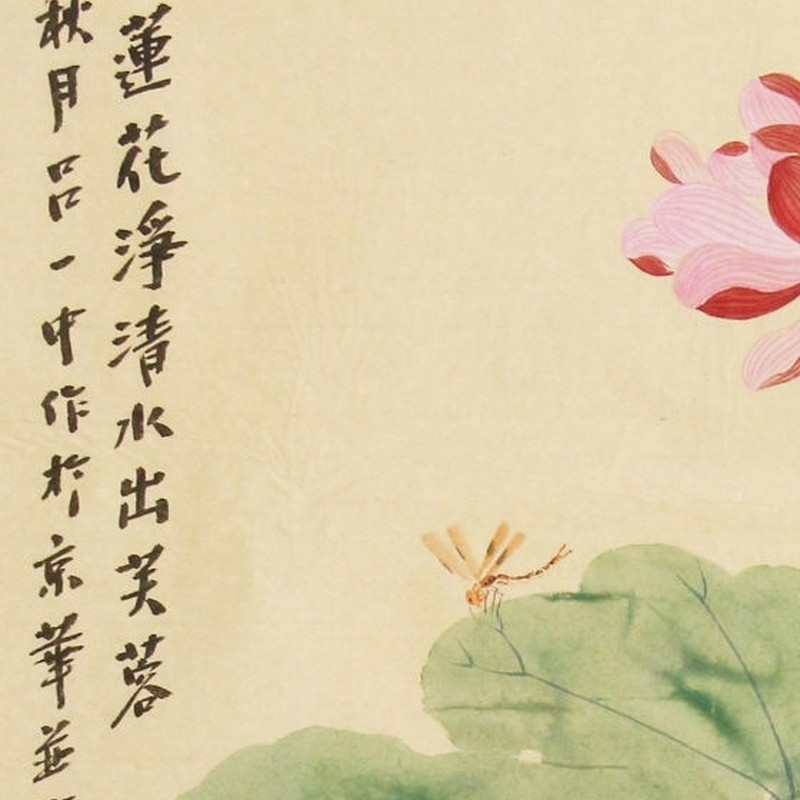 蓮花淨清水出芙蓉
秋月吕一中作於京華並